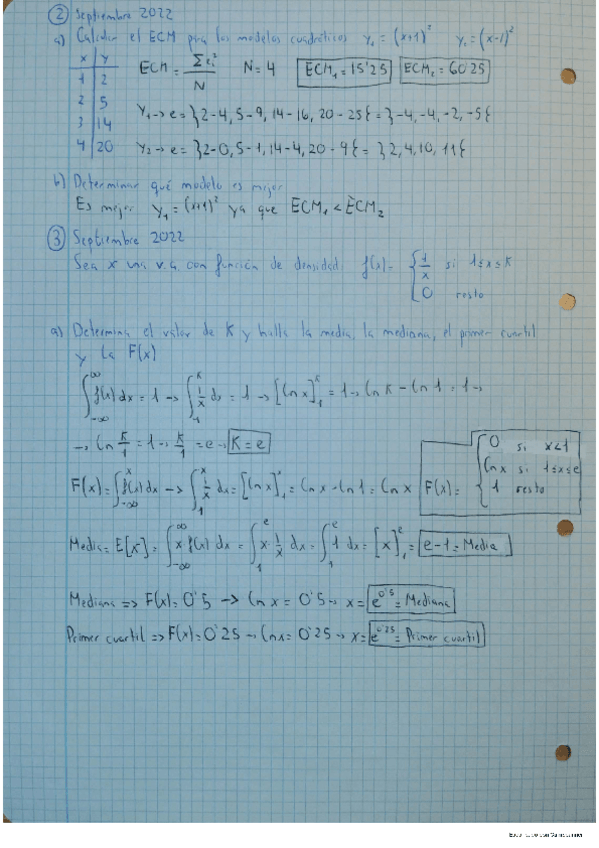 ② Septiembre 2022
a) Calcular el ECM para los modelos cuadráticos Y₁ = (x+1)² Y₂ = (x-1)²
x | y
1 | 2
2 | 5
3 | 14
4 | 20
ECM = Σei² / N N = 4 ECM₁ = 15'25 ECM₂ = 60'25
Y₁ → e = }2-4, 5-9, 14-16, 20-25{ = }-4, -4, -2, -5{
Y₂ → e = }2-0, 5-1, 14-4, 20-9{ = }2, 4, 10, 11{
b) Determinar qué modelo es mejor
Es mejor Y₁ = (x+1)² ya que ECM₁ < ECM₂
③ Septiembre 2022
Sea x una v.a con función de densidad: f(x) = { 1/x si 1≤x≤K
0 resto
a) Determina el valor de K y halla la media, la mediana, el primer cuartil
y la F(x)
∫_{-∞}^{∞} f(x) dx = 1 → ∫_1^K 1/x dx = 1 → [Ln x]_1^K = 1 → Ln K - Ln 1 = 1 →
→ Ln K/1 = 1 → K/1 = e → K = e
F(x) = ∫_{-∞}^x f(x) dx → ∫_1^x 1/x dx = [Ln x]_1^x = Ln x - Ln 1 = Ln x F(x) = { 0 si x<1
Ln x si 1≤x≤e
1 resto
Media = E[x] = ∫_{-∞}^{∞} x f(x) dx = ∫_1^e x · 1/x dx = ∫_1^e 1 dx = [x]_1^e = e-1 = Media
Mediana ⇒ F(x) = 0'5 → Ln x = 0'5 → x = e^{0'5} = Mediana
Primer cuartil ⇒ F(x) = 0'25 → Ln x = 0'25 → x = e^{0'25} = Primer cuartil